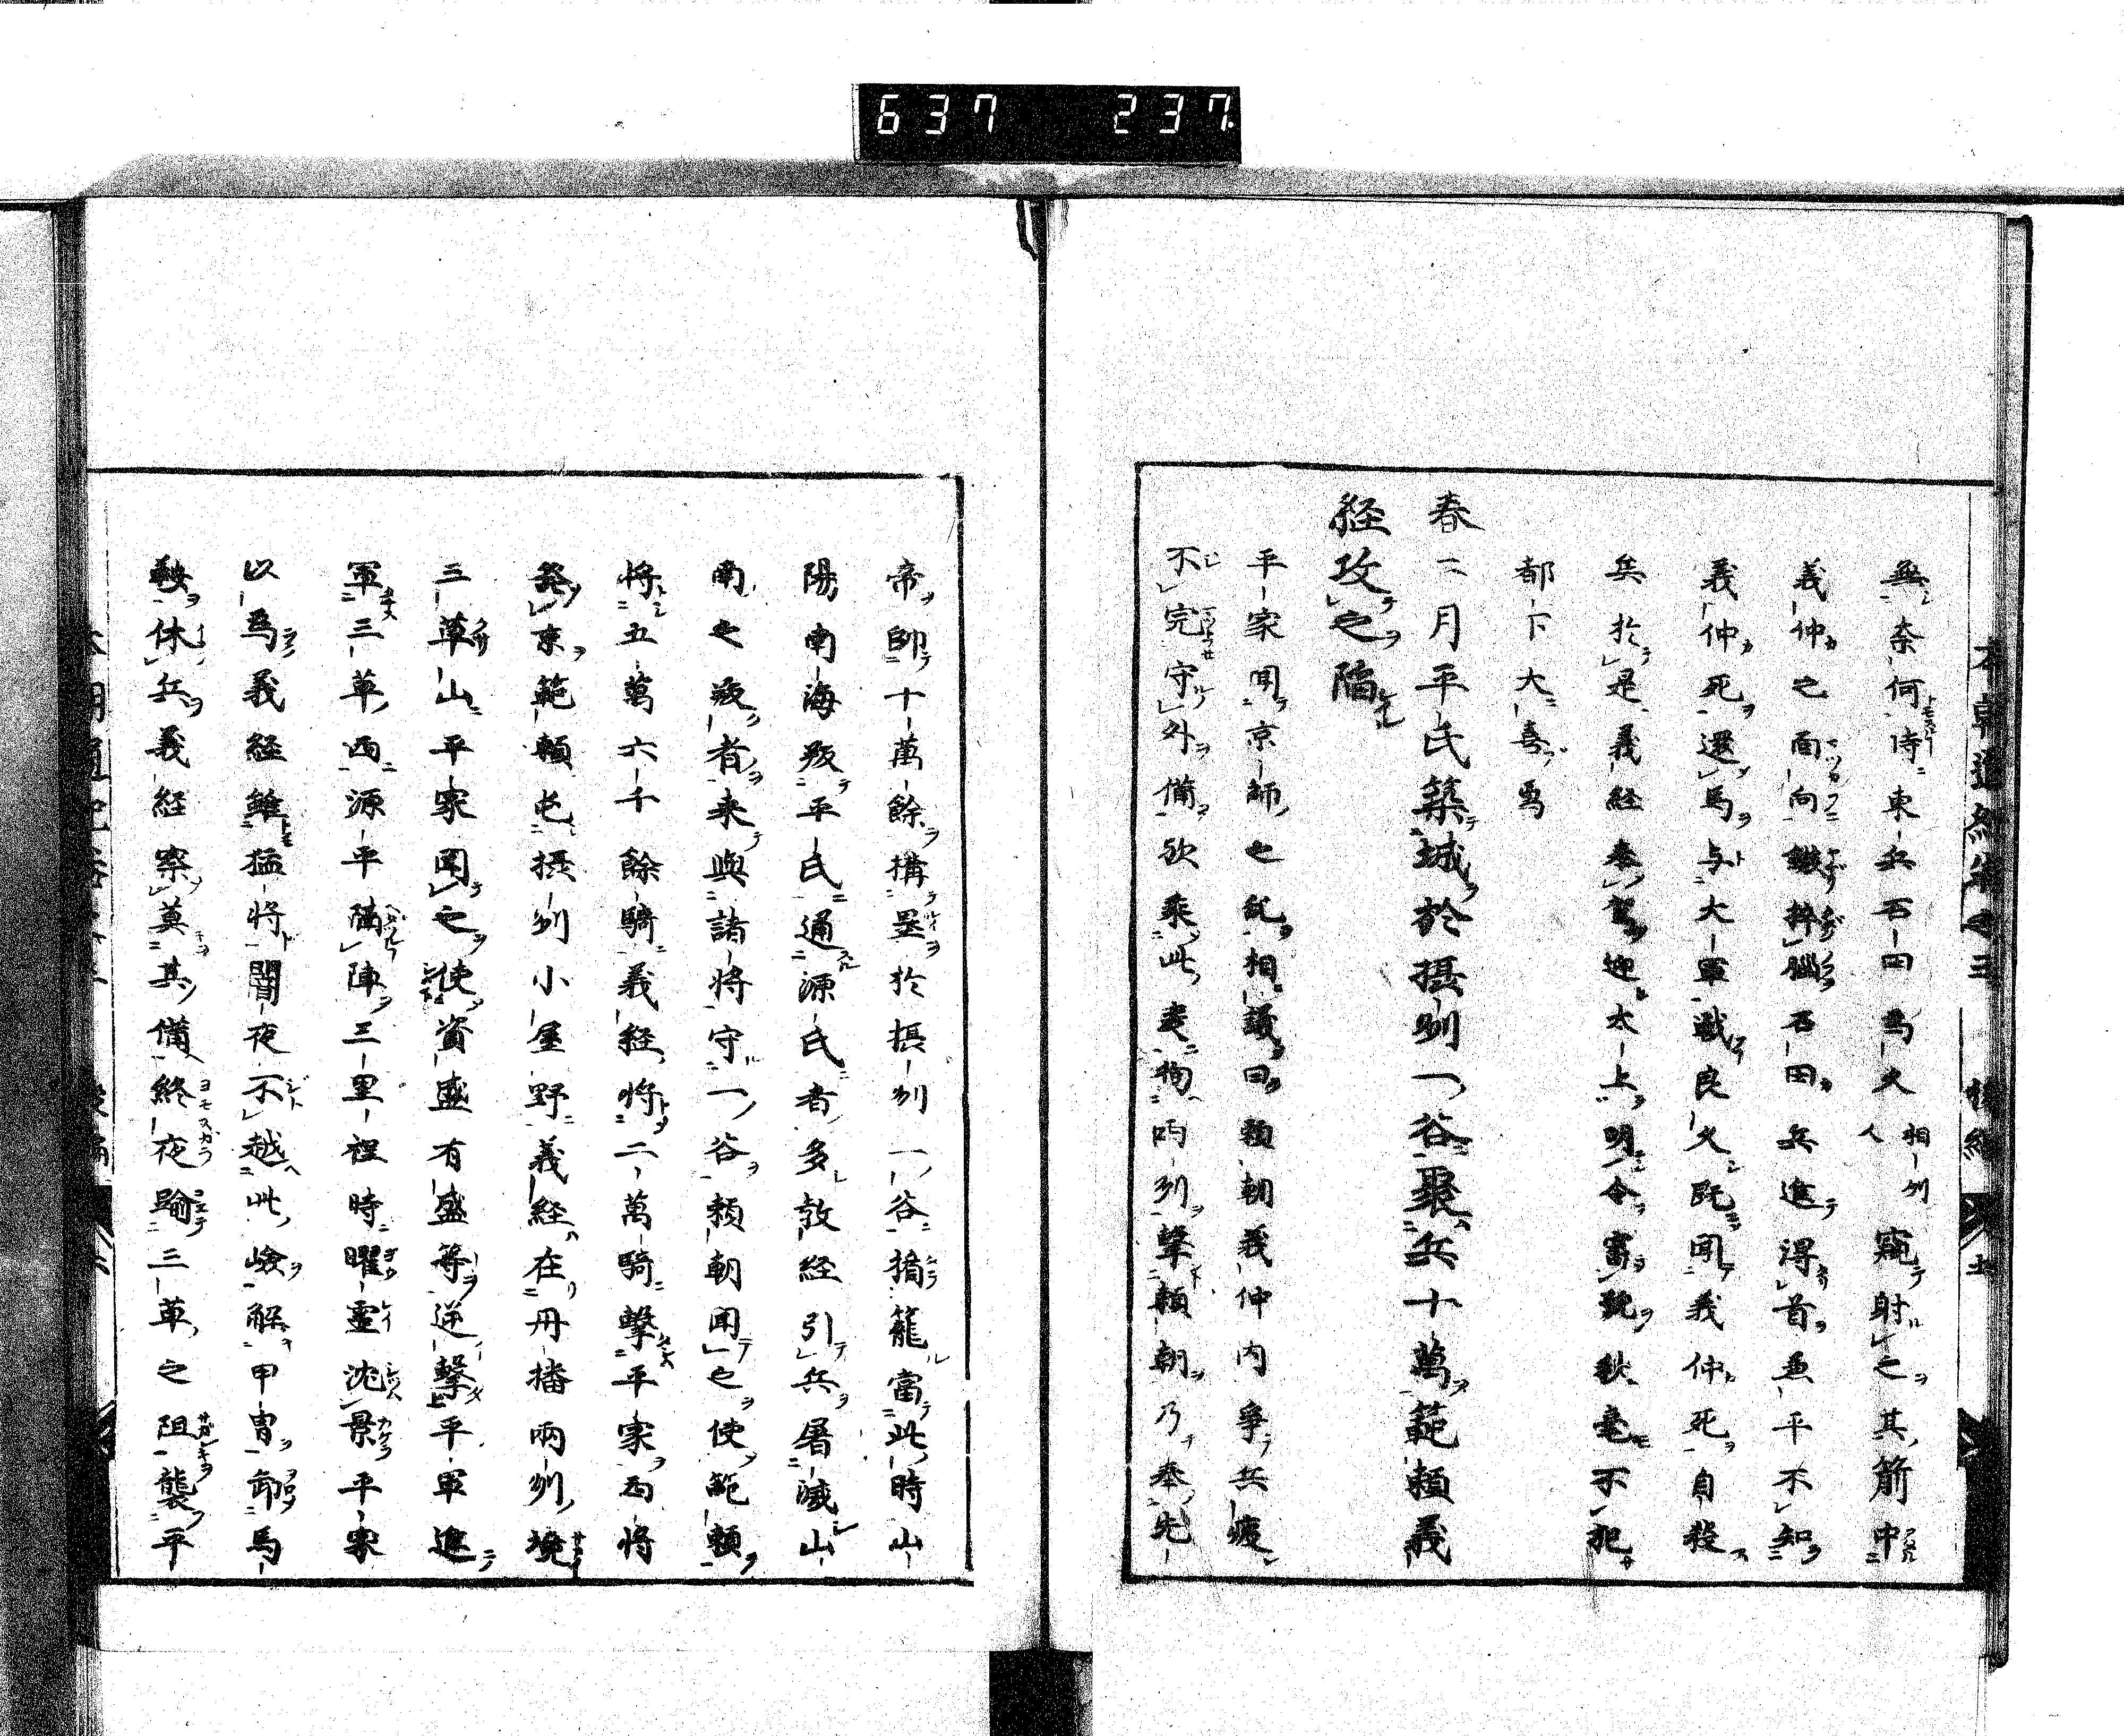 637 237
無奈何時東兵石田爲久相州人窺射之其箭中
義仲之面向鏃碎腦石田兵進得首兼平不知
義仲死還馬与大軍戰良久既聞義仲死自殺
兵於是義經奉駕迎太上明令審號秋毫不犯
都下大喜焉
春二月平氏築城於摂州一谷聚兵十萬範頼義
経攻之陥
平家聞京師之乱相議曰頼朝義仲内争兵疲
不完守外備欲乘此変徇両州撃頼朝乃奉先
帝帥十萬餘搆塁於摂州一谷楯籠當此時山
陽南海叛平氏通源氏者多教経引兵屠滅山
南之叛者来與諸将守一谷頼朝聞之使範頼
将五萬六千餘騎義経将二萬騎撃平家両将
発京範頼屯摂州小屋野義経在丹播両州境
三草山平家聞之使資盛有盛等逆撃平軍進
軍三草西源平隔陣三里程時曜靈沈景平家
以爲義経雖猛将闇夜不越此嶮解甲冑卸馬
鞍休兵義経察莫其備終夜踰三草之阻襲平